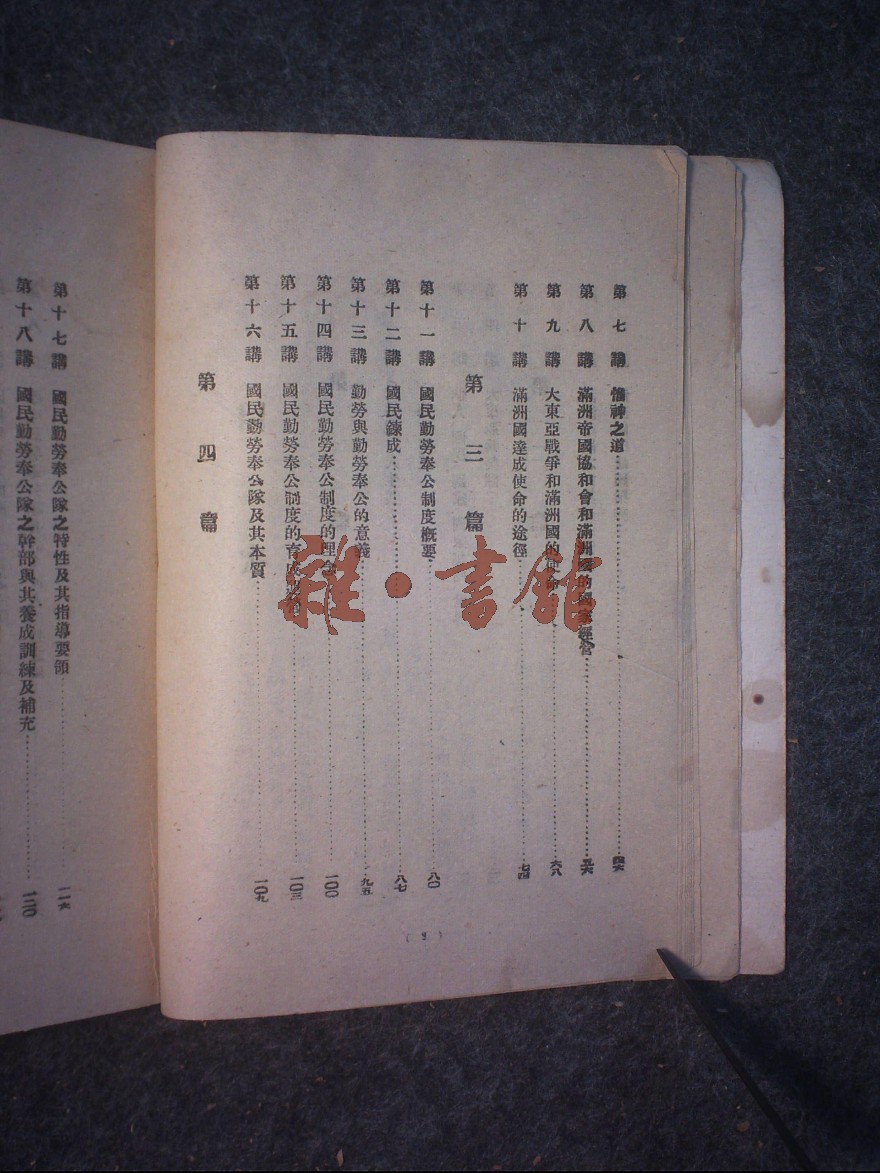 第七講 惟神之道 四六
第八講 滿洲帝國協和會和滿洲國的國家經營 五六
第九講 大東亞戰爭和滿洲國的使命 六八
第十講 滿洲國達成使命的途徑 七四
第三篇
第十一講 國民勤勞奉公制度概要 八〇
第十二講 國民鍊成 八七
第十三講 勤勞與勤勞奉公的意義 九五
第十四講 國民勤勞奉公制度的理念 一〇〇
第十五講 國民勤勞奉公制度的育成 一〇三
第十六講 國民勤勞奉公隊及其本質 一〇九
第四篇
(2)
第十七講 國民勤勞奉公隊之特性及其指導要領 一一六
第十八講 國民勤勞奉公隊之幹部與其養成訓練及補充 一二〇
雜·書館